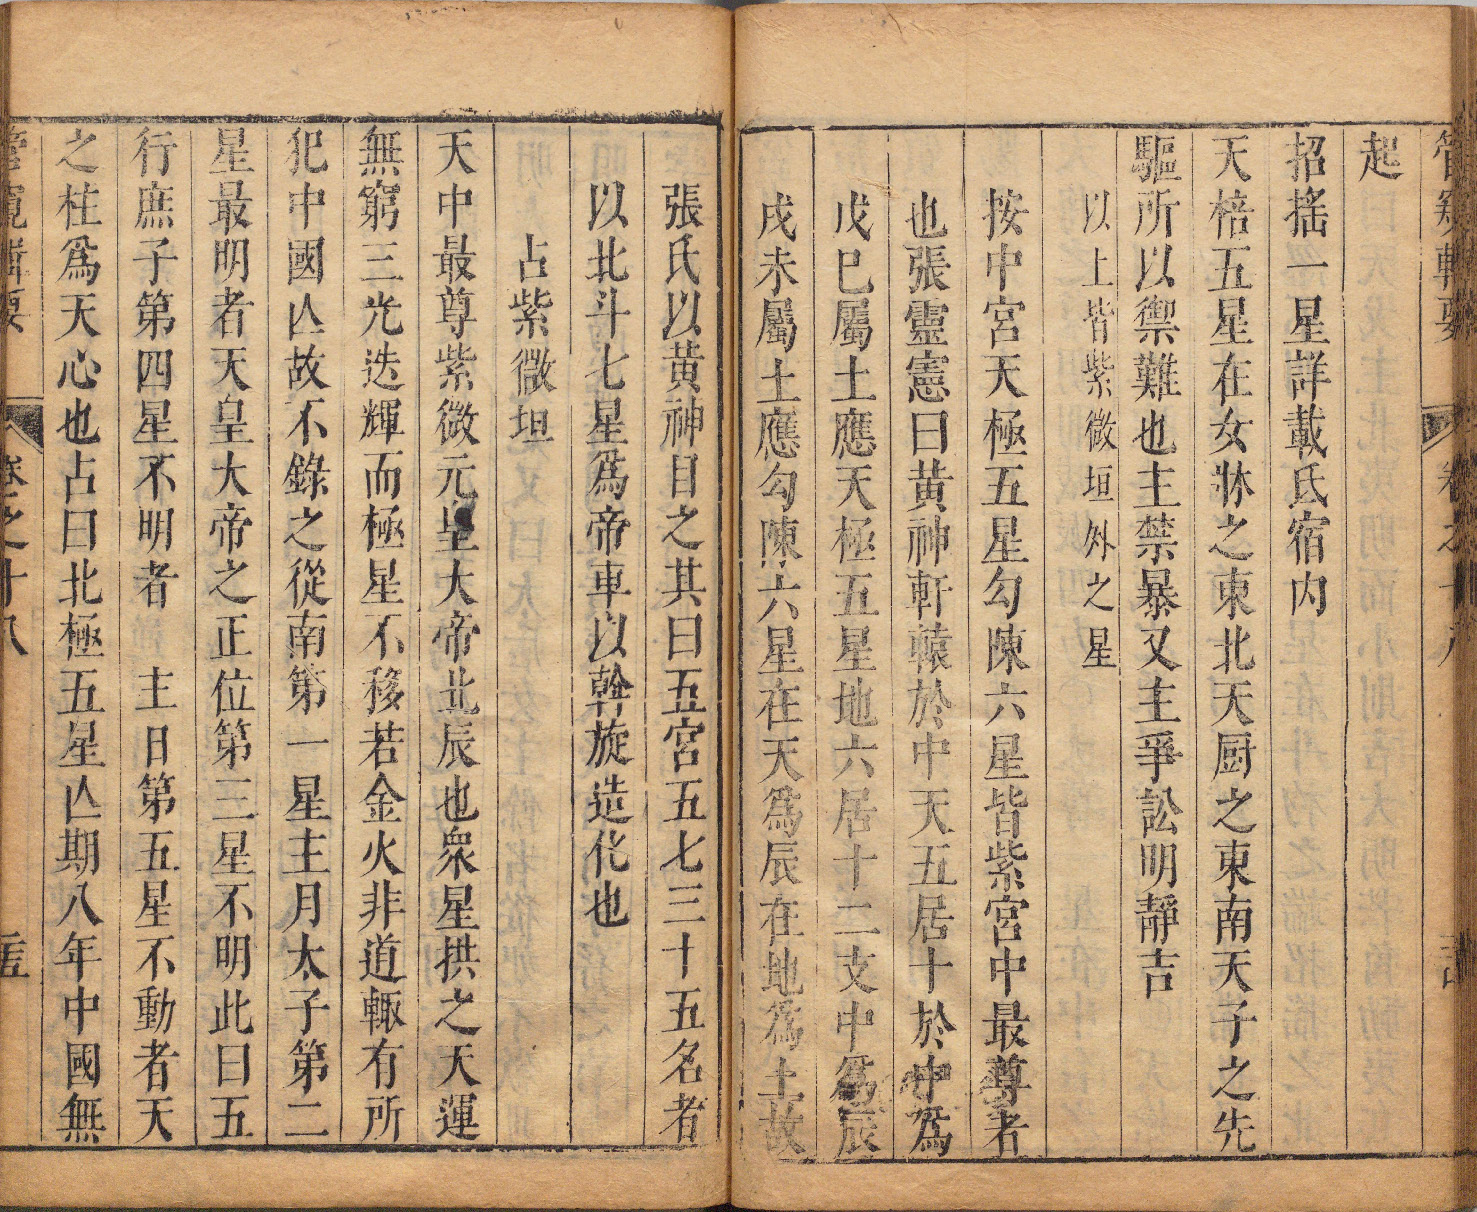 管窺輯要 卷之十八
起
招搖一星詳載氐宿内
天棓五星在女牀之東北天厨之東南天子之先
驅所以禦難也主禁暴又主爭訟明靜吉
以上皆紫微垣外之星
按中宮天極五星勾陳六星皆紫宮中最尊者
也張靈憲曰黄神軒轅於中天五居十於中爲
戊巳屬土應天極五星地六居十二支中爲辰
戌未屬土應勾陳六星在天爲辰在地爲土故
張氏以黄神目之其曰五宮五七三十五名者
以北斗七星爲帝車以斡旋造化也
占紫微垣
天中最尊紫微元皇大帝北辰也衆星拱之天運
無窮三光迭輝而極星不移若金火非道輙有所
犯中國亾故不錄之從南第一星主月太子第二
星最明者天皇大帝之正位第三星不明此曰五
行庶子第四星不明者 主日第五星不動者天
之柱爲天心也占曰北極五星亾期八年中國無
管窺輯要 卷之十八 二十五